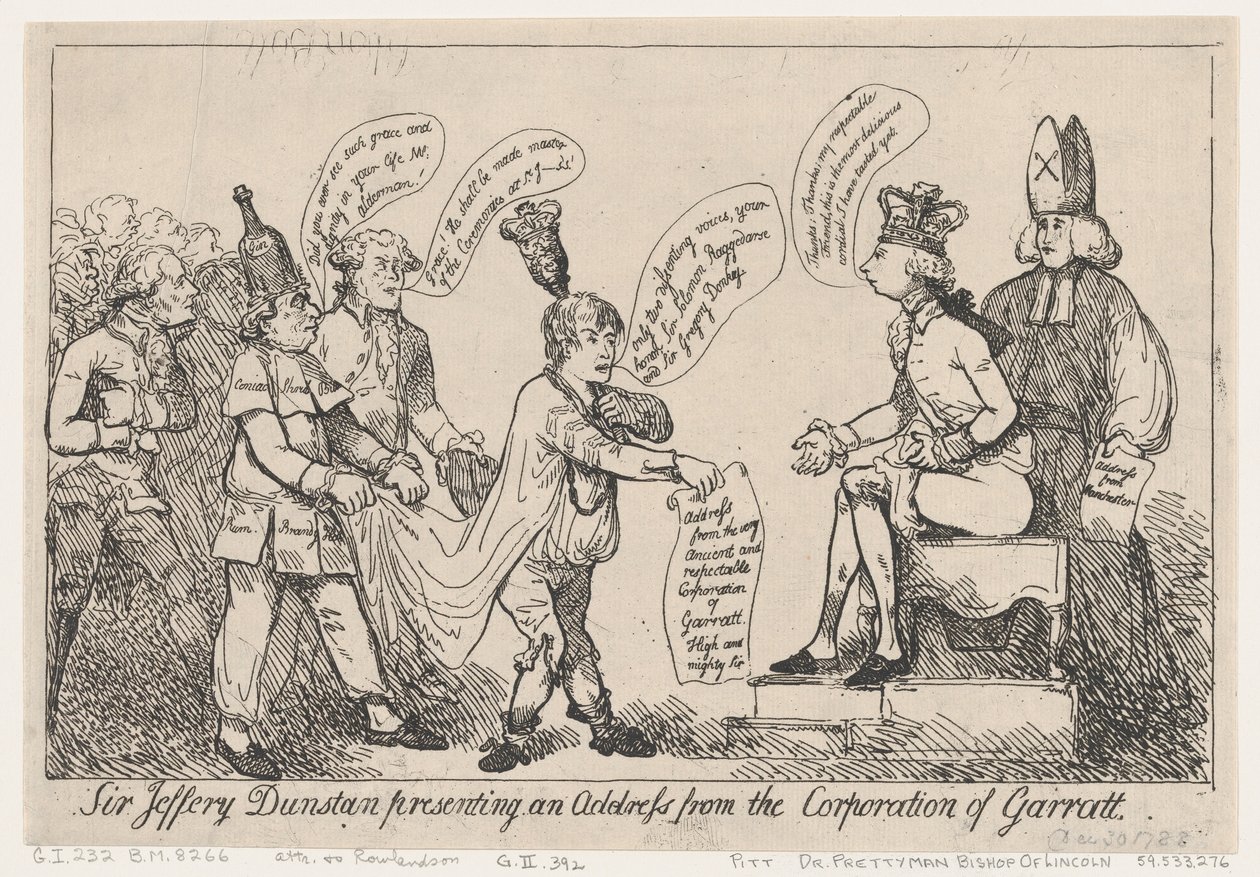 Did you ever see such grace and
dignity in your life Mr.
alderman!
Grace! He shall be made master
of the Ceremonies at St. J——s's!
only two dissenting voices, your
honor, Sir Solomon Raggedarse
and Sir Gregory Donkey.
Thanks, Thanks; my respectable
Friend, this is the most delicious
cordial I have tasted yet.
Gin
Rum
Brandy
Address
from the very
Ancient and
respectable
Corporation
of
Garratt.
High and
mighty Sir
Address
from
Manchester
Sir Jeffery Dunstan presenting an Address from the Corporation of Garratt.
Dec 30 1788
G.I. 232 B.M. 8266 attr. to Rowlandson G.II. 392 PITT DR. PRETTYMAN BISHOP OF LINCOLN 59.533.276